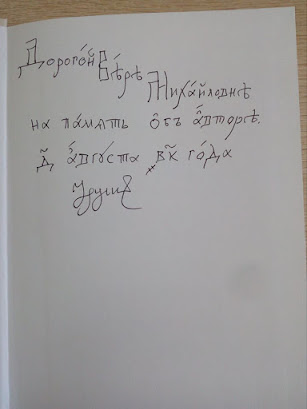 Дорого́й Вѣ́рѣ
Миха́йловнѣ
на па́мять о̂бъ а҆́вторѣ.
Д҃ а҆́вгуста ҂в҃к го́да